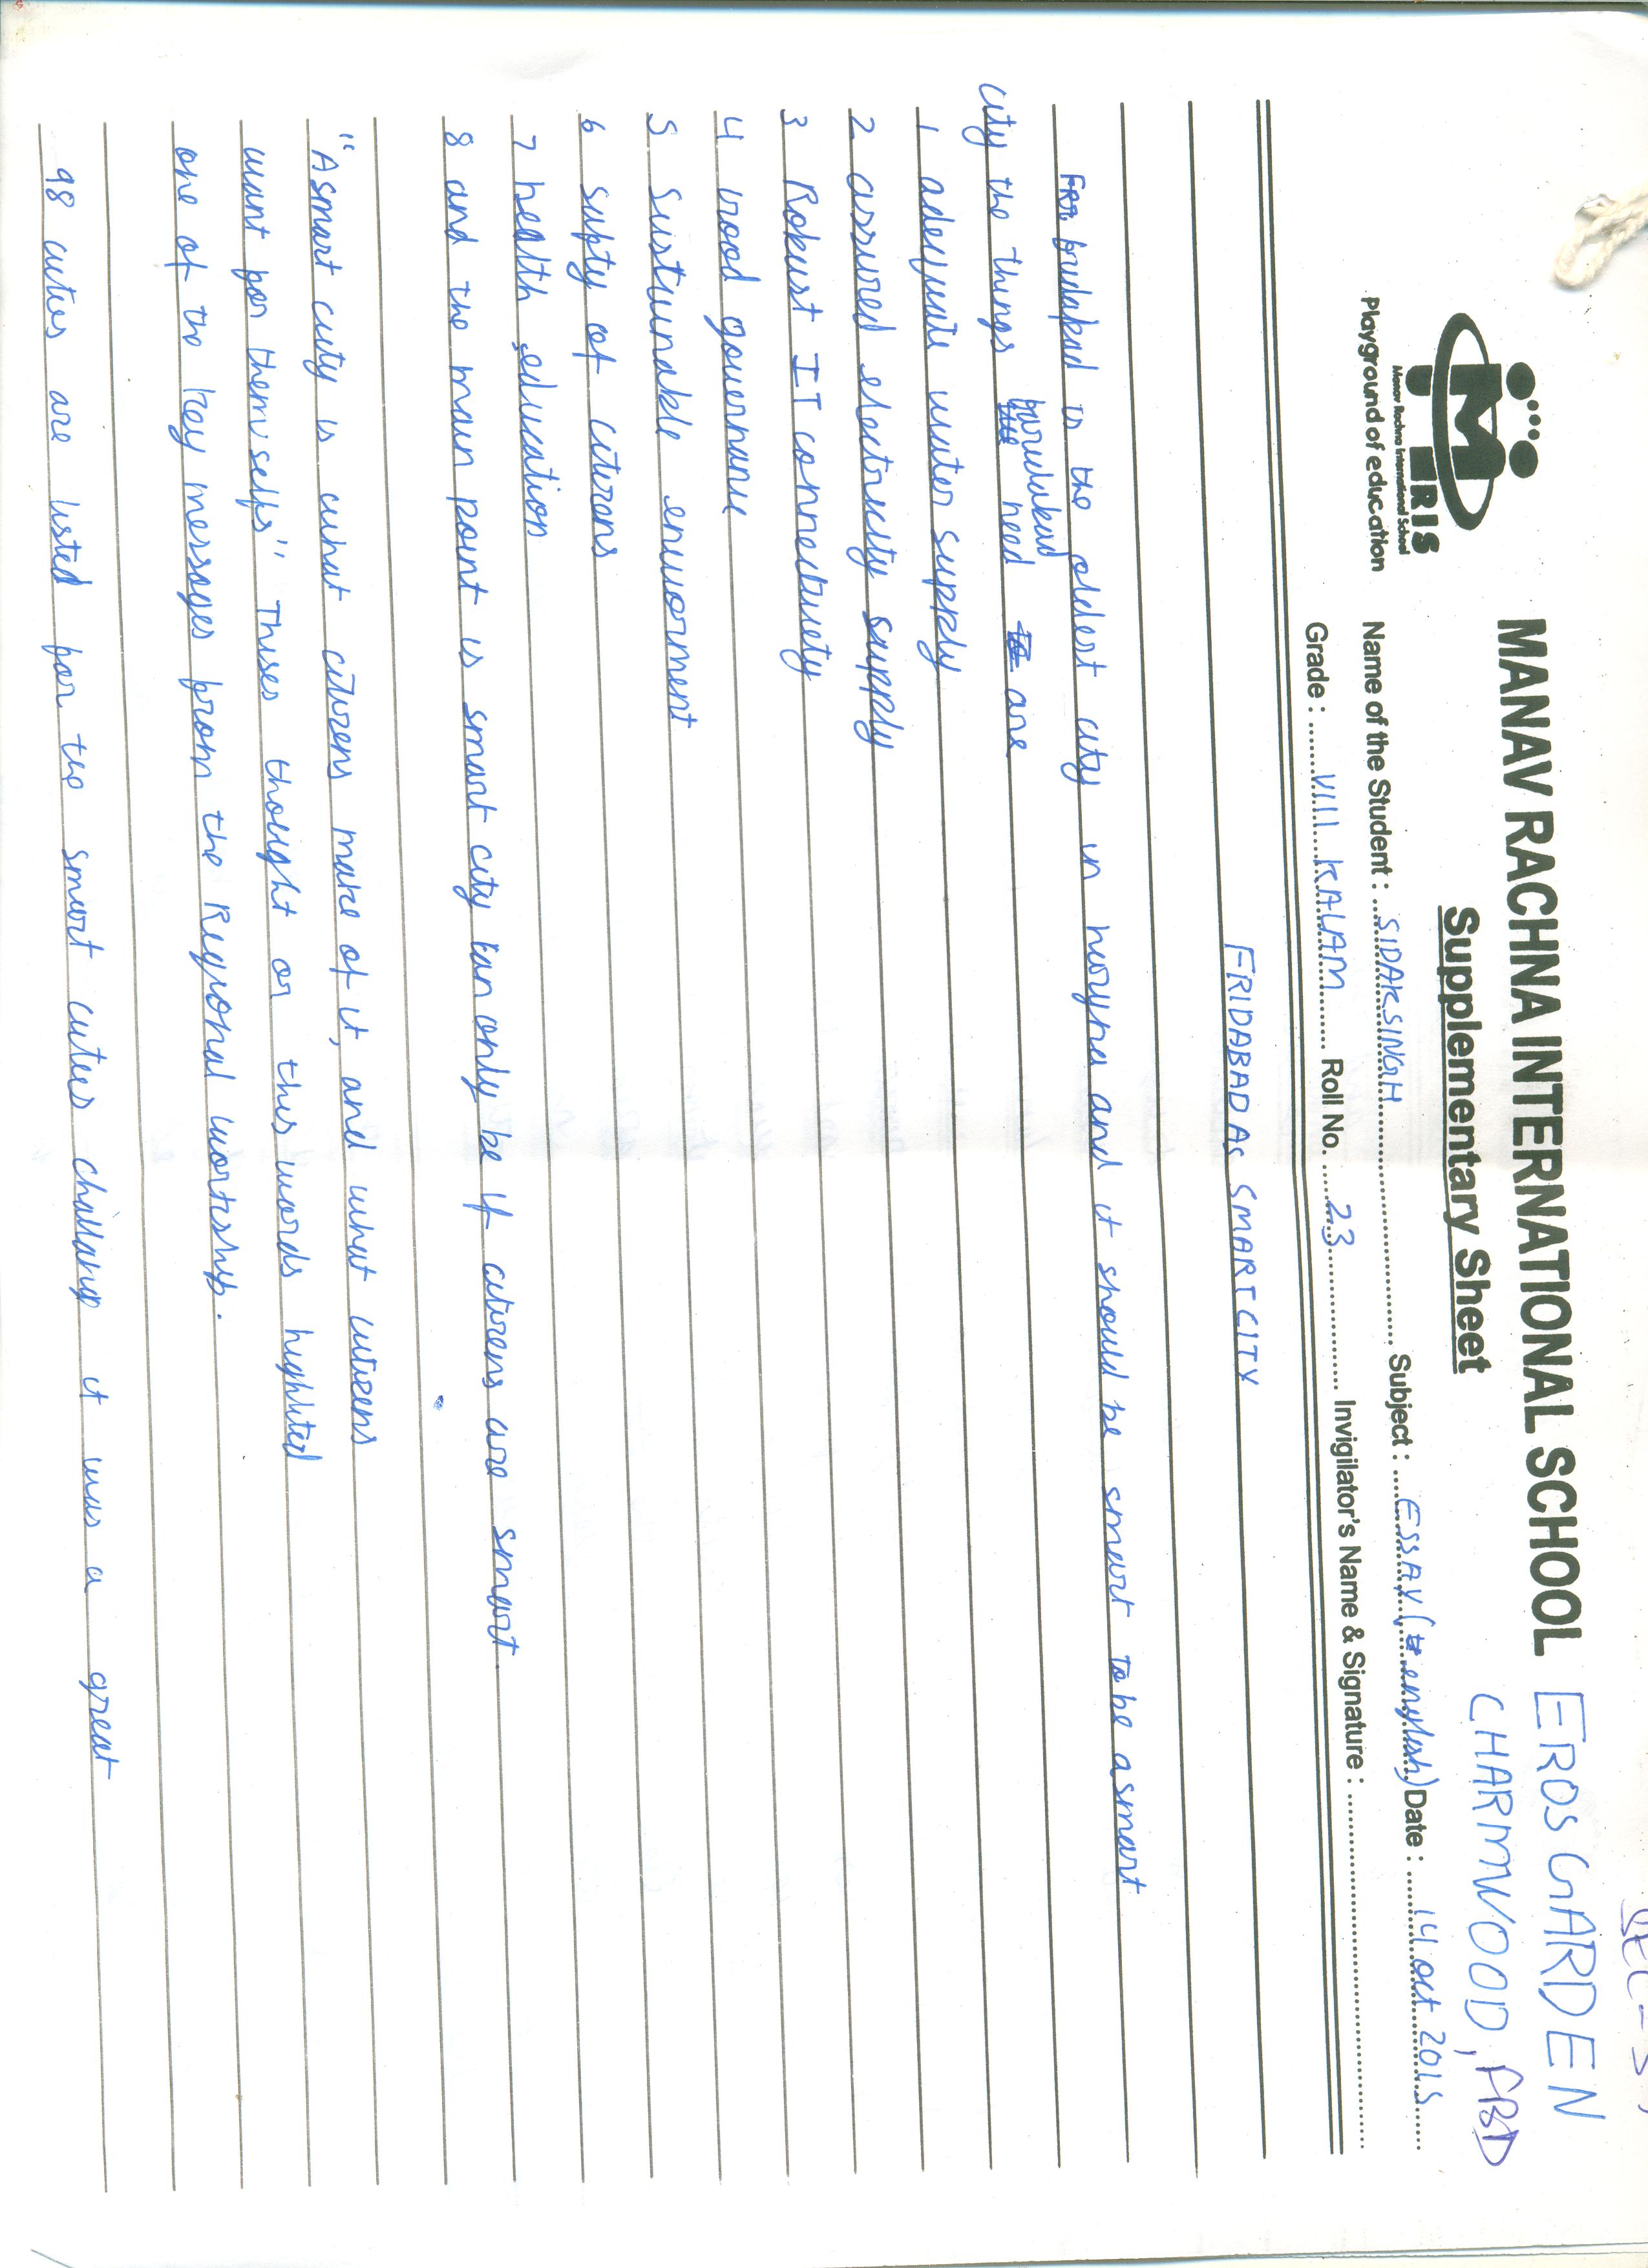 MANAV RACHNA INTERNATIONAL SCHOOL
EROS GARDEN
CHARMWOOD, FBD
Supplementary Sheet
MRIS
Manav Rachna International School
Playground of education
Name of the Student : SIDAK SINGH Subject : ESSAY (english) Date : 14 oct 2015
Grade : VIII KALAM Roll No. 23 Invigilator's Name & Signature :
FRIDABAD AS SMART CITY
fridabad is the oldest city in haryna and it should be smart to be a smart
city the things faridabad need are
1 adequate water supply
2 assured electricity supply
3 Robust IT connectivety
4 Good governance
5 Sustunable enviorment
6 safty of citizens
7 health, education
8 and the main point is smart city can only be if citizens are smart.
"A smart city is what citizens make of it, and what citizens
want for themselfs" Thises thought or this words highlited
one of the key messages from the Regional workship.
98 cities are listed for the smart cities challange it was a great